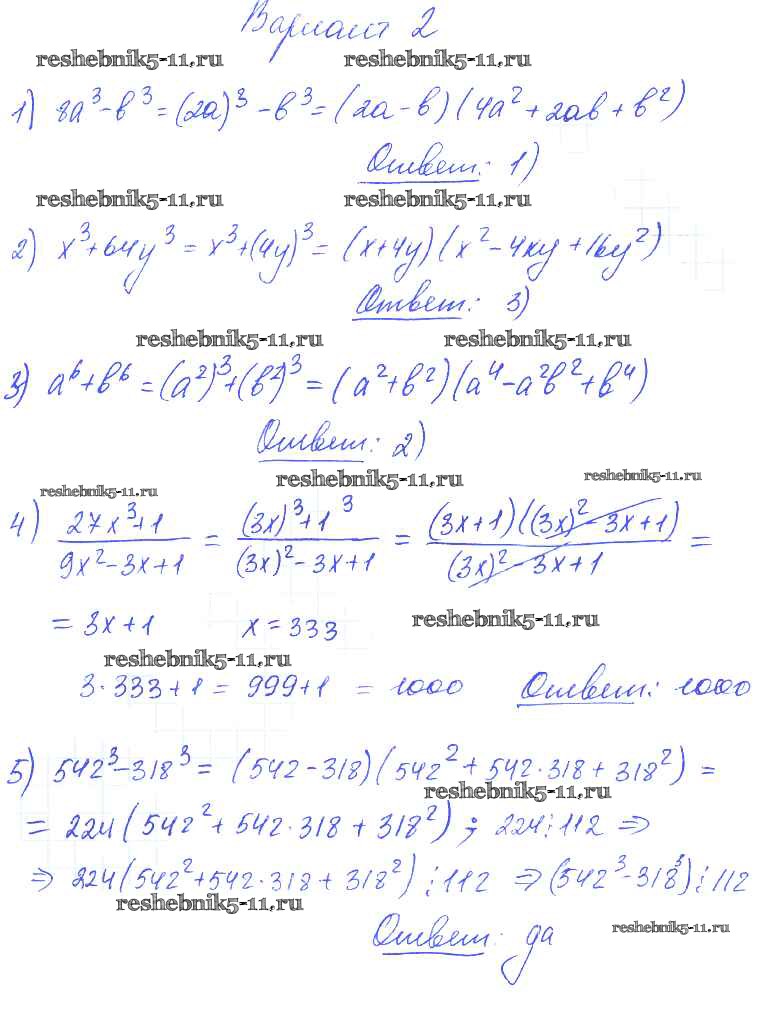 Вариант 2
reshebnik5-11.ru reshebnik5-11.ru
1) 8a³-b³=(2a)³-b³=(2a-b)(4a²+2ab+b²)
Ответ: 1)
reshebnik5-11.ru reshebnik5-11.ru
2) x³+64y³=x³+(4y)³=(x+4y)(x²-4xy+16y²)
Ответ: 3)
reshebnik5-11.ru reshebnik5-11.ru
3) a⁶+b⁶=(a²)³+(b²)³=(a²+b²)(a⁴-a²b²+b⁴)
Ответ: 2)
reshebnik5-11.ru reshebnik5-11.ru reshebnik5-11.ru
4) (27x³+1)/(9x²-3x+1) = ((3x)³+1³)/((3x)²-3x+1) = ((3x+1)((3x)²-3x+1))/((3x)²-3x+1) =
= 3x+1 x=333 reshebnik5-11.ru
reshebnik5-11.ru
3·333+1 = 999+1 = 1000 Ответ: 1000
5) 542³-318³ = (542-318)(542²+542·318+318²) =
reshebnik5-11.ru
= 224(542²+542·318+318²); 224⋮112 ⇒
⇒ 224(542²+542·318+318²)⋮112 ⇒(542³-318³)⋮112
reshebnik5-11.ru
Ответ: да reshebnik5-11.ru